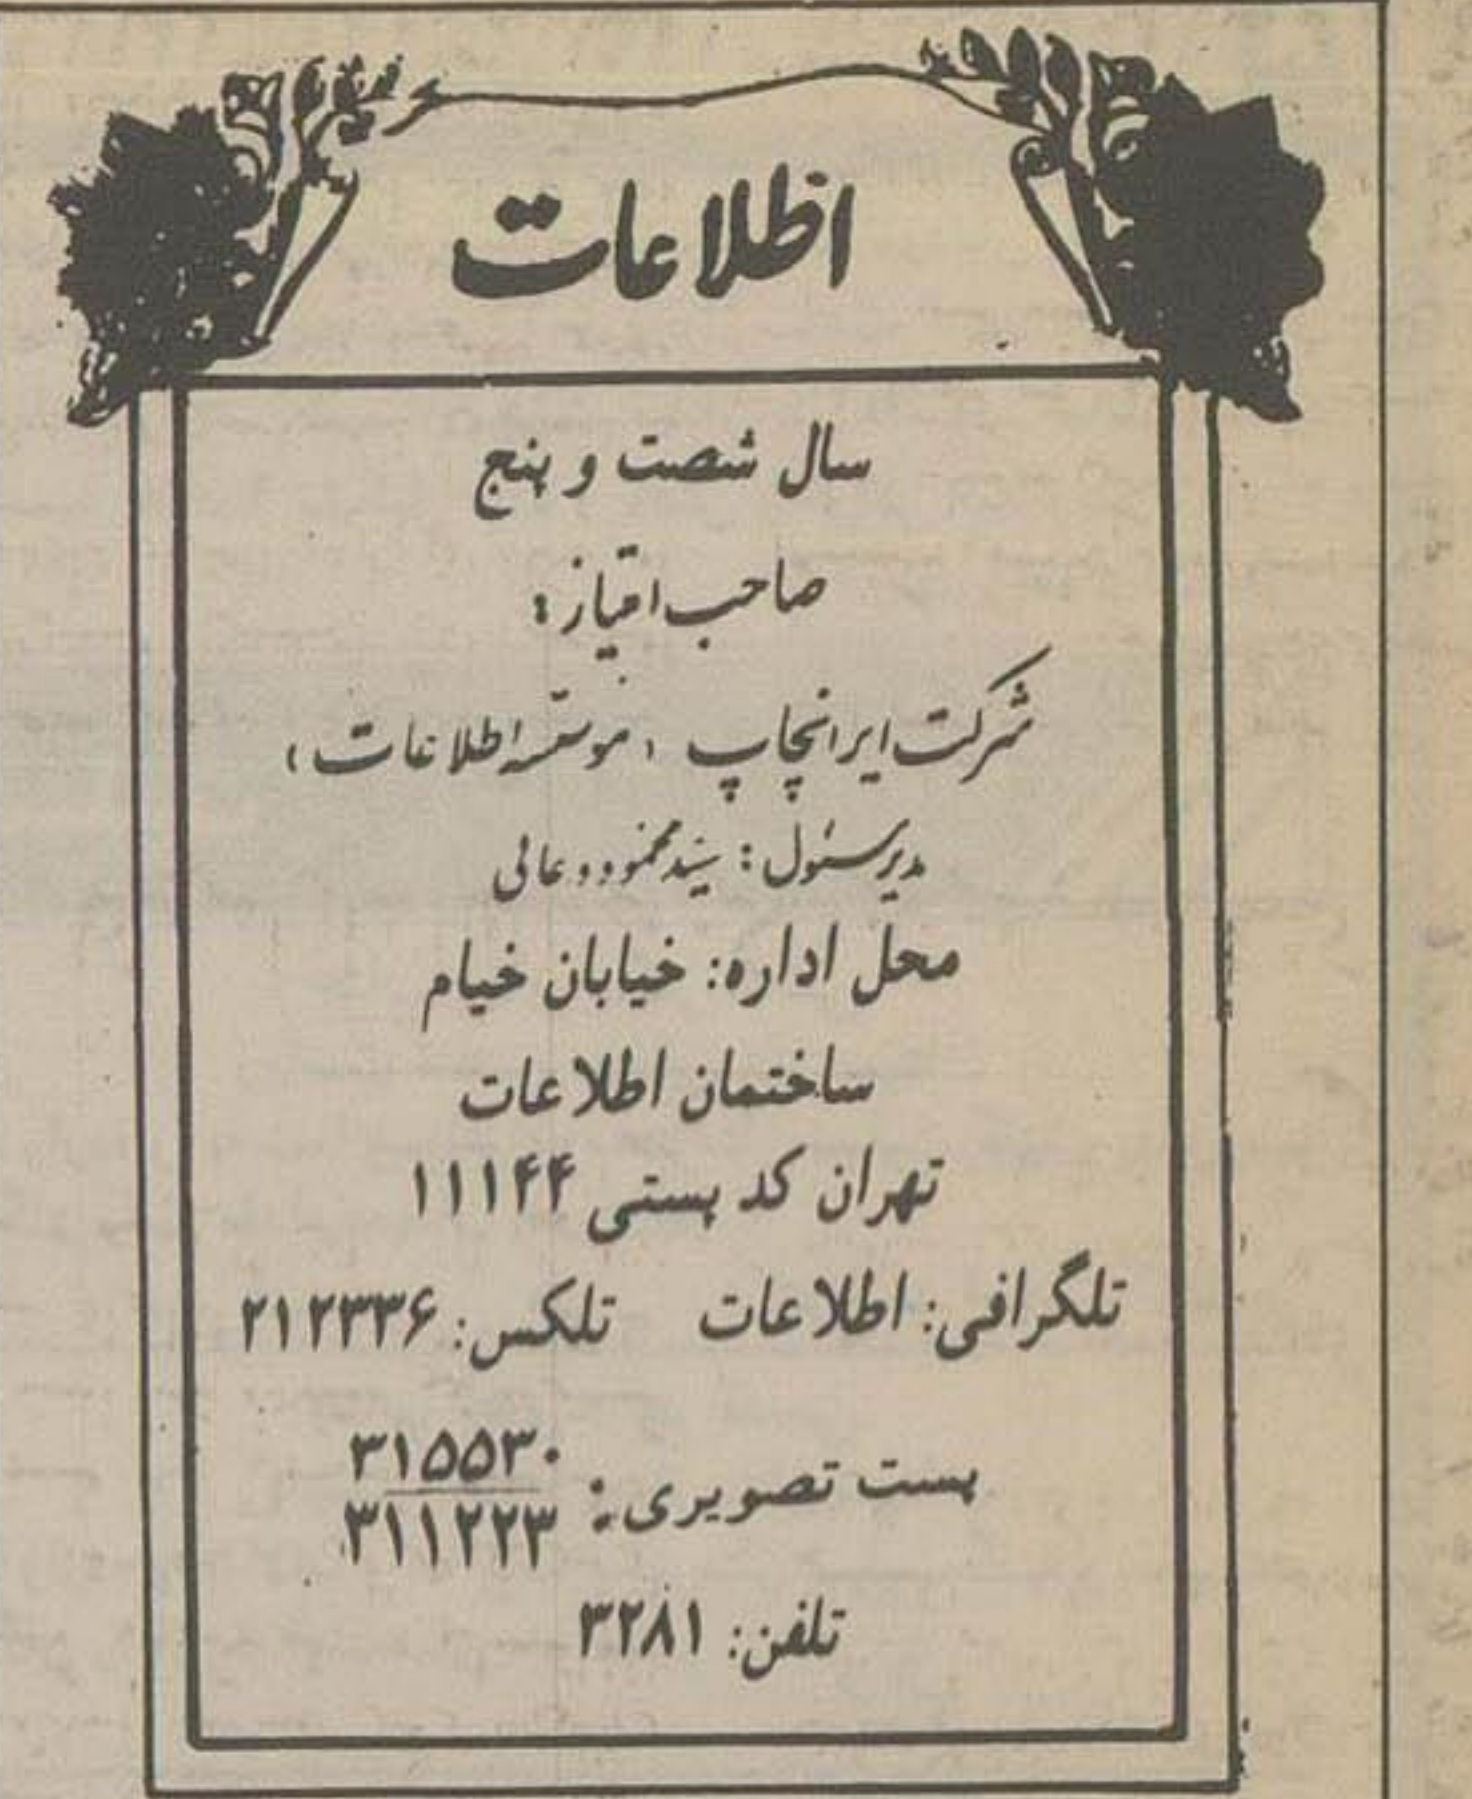 اطلاعات
سال شصت و پنج
صاحب امتیاز:
شرکت ایرانچاپ (موسسه اطلاعات)
مدیر مسئول: سید محمود دعائی
محل اداره: خیابان خیام
ساختمان اطلاعات
تهران کد پستی ۱۱۱۴۴
تلگرافی: اطلاعات تلکس: ۲۱۲۳۳۶
پست تصویری: ۳۱۵۵۳۰
۳۱۱۲۲۳
تلفن: ۳۲۸۱